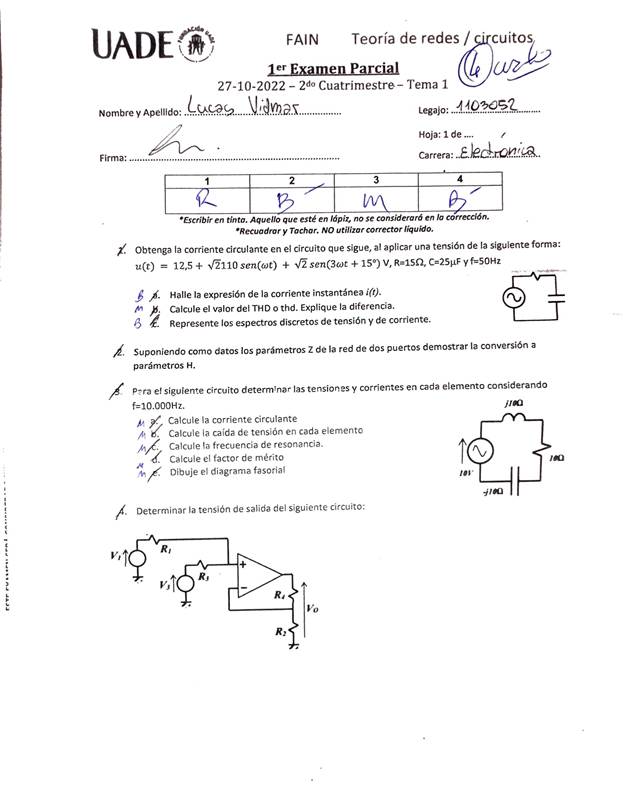 UADE FUNDACIÓN UADE FAIN Teoría de redes / circuitos
1er Examen Parcial
27-10-2022 – 2do Cuatrimestre – Tema 1
Nombre y Apellido: Lucas Vidmar Legajo: 1103052
Hoja: 1 de ....
Firma: Carrera: Electronica
1 2 3 4
R B- M B-
*Escribir en tinta. Aquello que esté en lápiz, no se considerará en la corrección.
*Recuadrar y Tachar. NO utilizar corrector líquido.
1. Obtenga la corriente circulante en el circuito que sigue, al aplicar una tensión de la siguiente forma:
u(t) = 12,5 + √2110 sen(ωt) + √2 sen(3ωt + 15°) V, R=15Ω, C=25μF y f=50Hz
B a. Halle la expresión de la corriente instantánea i(t).
M b. Calcule el valor del THD o thd. Explique la diferencia.
B c. Represente los espectros discretos de tensión y de corriente.
2. Suponiendo como datos los parámetros Z de la red de dos puertos demostrar la conversión a
parámetros H.
3. Para el siguiente circuito determinar las tensiones y corrientes en cada elemento considerando
f=10.000Hz.
M a. Calcule la corriente circulante
M b. Calcule la caída de tensión en cada elemento
M c. Calcule la frecuencia de resonancia.
M d. Calcule el factor de mérito
M e. Dibuje el diagrama fasorial
j10Ω
10Ω
10V
-j10Ω
4. Determinar la tensión de salida del siguiente circuito:
V1 R1
V3 R3
+
-
R4
V0
R2